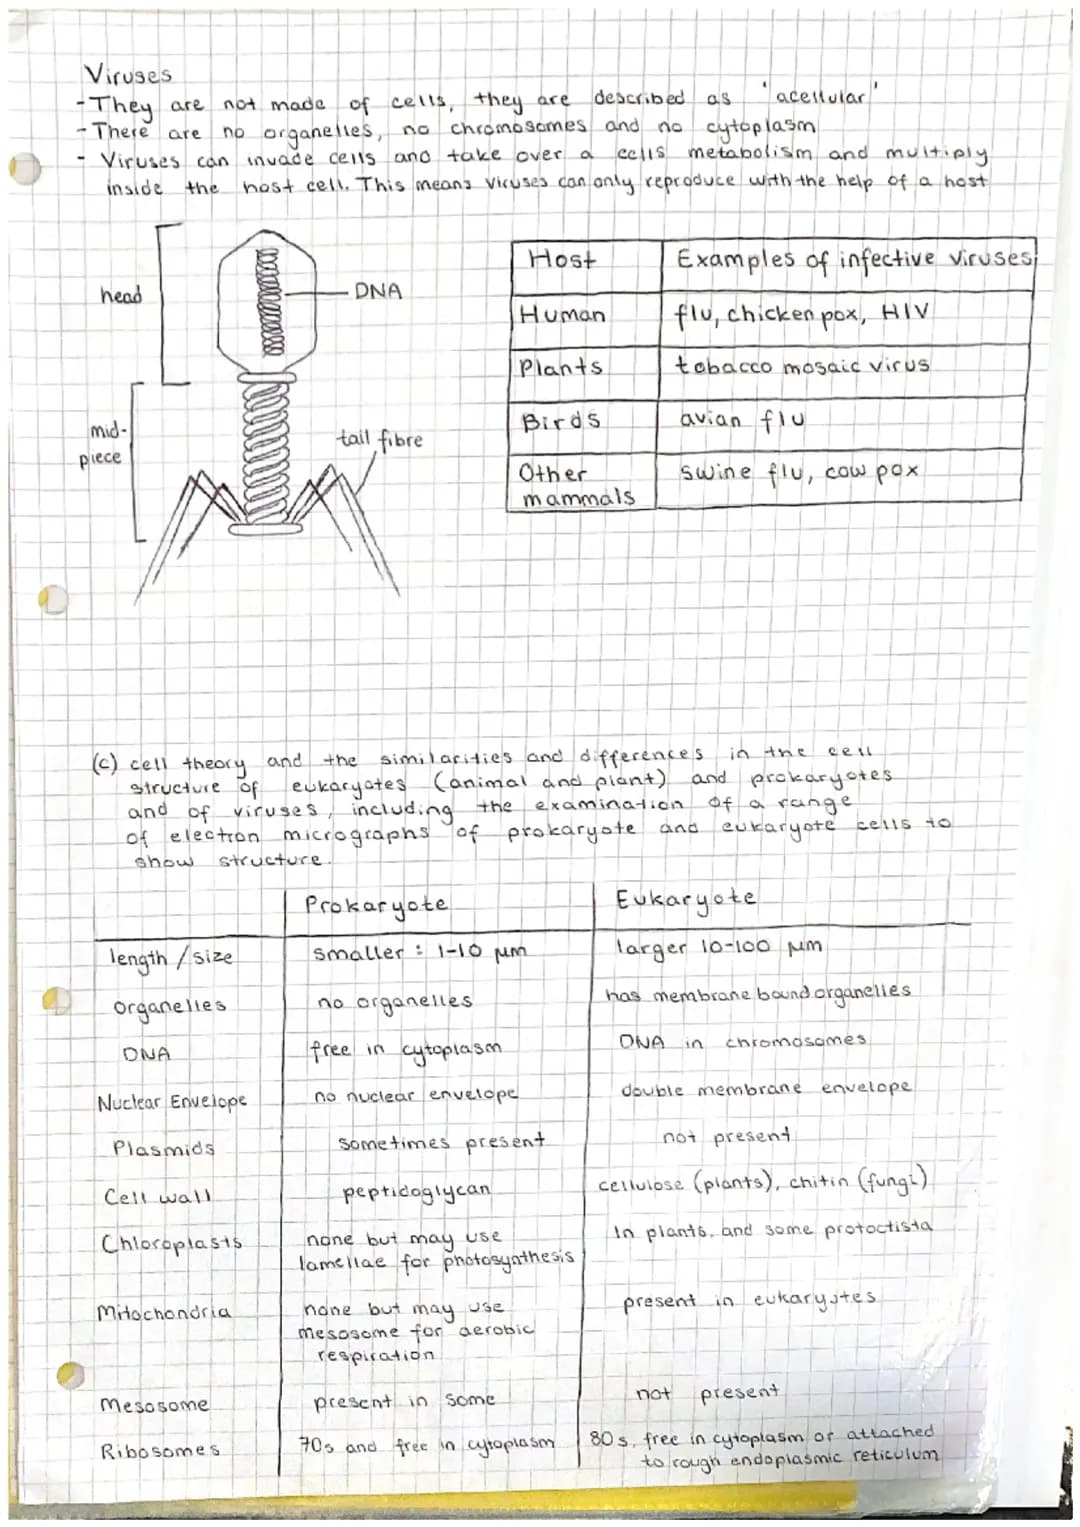 Viruses
-They are not made of cells, they are described as 'acellular'
-There are no organelles, no chromosomes and no cytoplasm
- Viruses can invade cells and take over a cells metabolism and multiply
inside the host cell. This means viruses can only reproduce with the help of a host
head
DNA
mid-
piece
tail fibre
Host Examples of infective viruses
Human flu, chicken pox, HIV
Plants tobacco mosaic virus
Birds avian flu
Other swine flu, cow pox
mammals
(c) cell theory and the similarities and differences in the cell
structure of eukaryotes (animal and plant) and prokaryotes
and of viruses, including the examination of a range
of electron micrographs of prokaryote and eukaryote cells to
show structure.
Prokaryote Eukaryote
length/size smaller: 1-10 μm larger 10-100 μm
organelles no organelles has membrane bound organelles
DNA free in cytoplasm DNA in chromosomes
Nuclear Envelope no nuclear envelope double membrane envelope
Plasmids sometimes present not present
Cell wall peptidoglycan cellulose (plants), chitin (fungi)
Chloroplasts none but may use In plants, and some protoctista
lamellae for photosynthesis
Mitochondria none but may use present in eukaryotes
mesosome for aerobic
respiration
Mesosome present in some not present
Ribosomes 70s and free in cytoplasm 80s, free in cytoplasm or attached
to rough endoplasmic reticulum